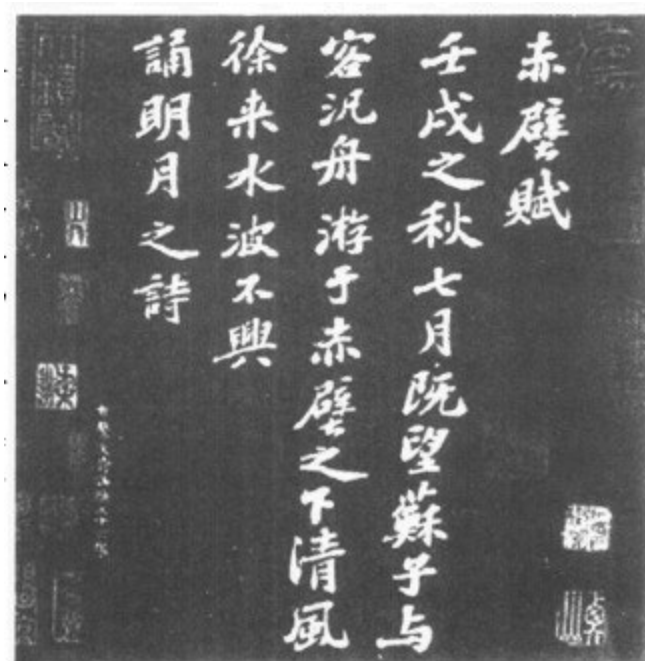 赤壁賦
壬戌之秋七月既望蘇子与
客汎舟游于赤壁之下清風
徐来水波不興
誦明月之詩